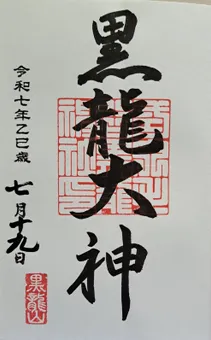 黒龍大神
令和七年乙巳歳
七月十九日
黒龍山